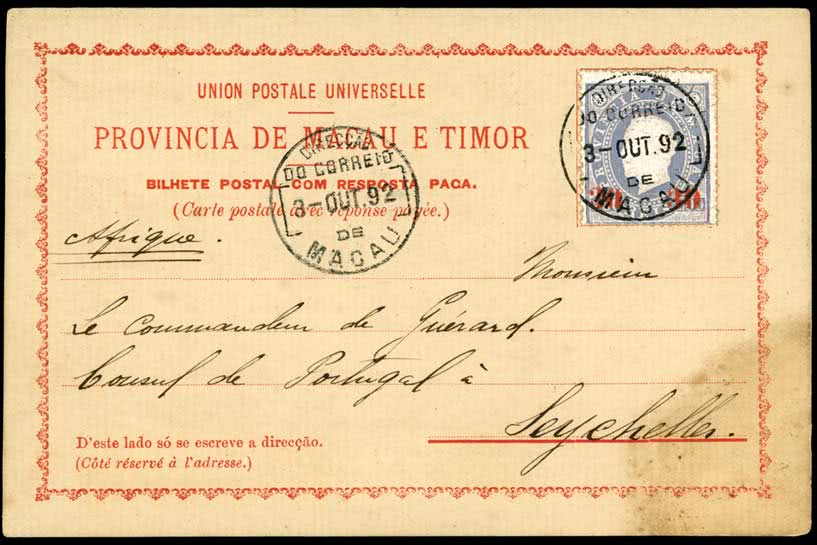 UNION POSTALE UNIVERSELLE
PROVINCIA DE MACAU E TIMOR
BILHETE POSTAL COM RESPOSTA PAGA.
(Carte postale avec réponse payée.)
DIRECÇÃO
DO CORREIO
3-OUT.92
DE
MACAU
DIRECÇÃO
DO CORREIO
3-OUT.92
DE
MACAU
30 30
Afrique.
Monsieur
Le Commandeur de Guérard.
Consul de Portugal à
Seychelles.
D'este lado só se escreve a direcção.
(Côté réservé à l'adresse.)